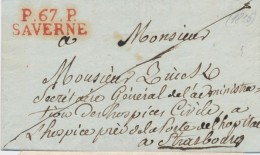 P. 67. P.
SAVERNE
a Monsieur
Monsieur
Secrétaire Général de l'administra-
tion des hospices Civils, a
l'hospice près de la Porte de l'hopital
a Strasbourg